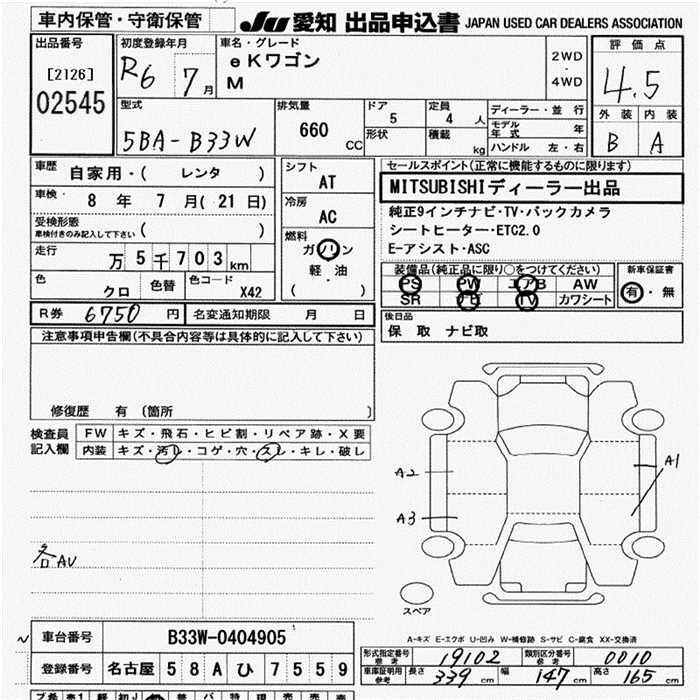 車内保管・守衛保管
JU 愛知 出品申込書 JAPAN USED CAR DEALERS ASSOCIATION
出品番号
[2126]
02545
初度登録年月
R6 7月
車名・グレード
eKワゴン
M
2WD
・
4WD
評価点
4.5
外装 内装
B A
型式
5BA-B33W
排気量
660 CC
ドア
5
定員
4 人
形状
積載
kg
ディーラー・並行
モデル年式 年
ハンドル 左・右
車歴
自家用・( レンタ )
車検・
8年 7月(21日)
受検形態
車検付きのみ記入して下さい ( )
走行
万5千703km
色
クロ
色替
色コード
X42
シフト
AT
冷房
AC
燃料
ガソリン
・
軽・油
( )
セールスポイント(正常に機能するものに限ります)
MITSUBISHIディーラー出品
純正9インチナビ・TV・バックカメラ
シートヒーター・ETC2.0
E-アシスト・ASC
装備品(純正品に限り○をつけてください)
PS PW エアB AW
SR ナビ TV カワシート
新車保証書
有・無
R券 6750円
名変通知期限 月 日
後日品
保 取 ナビ取
注意事項申告欄(不具合内容等は具体的に記入して下さい)
修復歴 有 (箇所 )
検査員
記入欄
FW キズ・飛石・ヒビ割・リペア跡・X要
内装 キズ・汚レ・コゲ・穴・スレ・キレ・破レ
各AU
A2
A3
A1
スペア
A-キズ E-エクボ U-凹み W-補修跡 S-サビ C-腐食 XX-交換済
車台番号 B33W-0404905
登録番号 名古屋 58A ひ 7559
形式指定番号
参考
19102
類別区分番号
参考
0010
車庫証明用
参考
長さ 339cm 幅 147cm 高さ 165cm